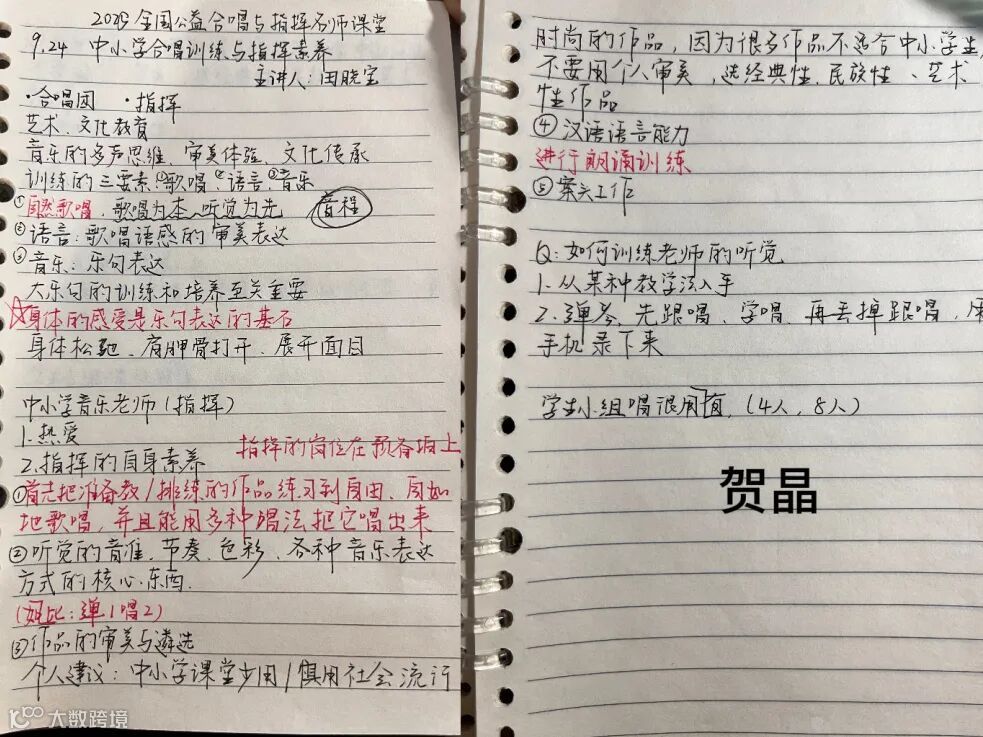 2025全国公益合唱与指挥名师课堂
9.24 中小学合唱训练与指挥素养
主讲人:田晓宝
·合唱团 ·指挥
艺术、文化教育
音乐的多声思维、审美体验、文化传承
训练的三要素:①歌唱②语言③音乐
①自然歌唱,歌唱为本、听觉为先 音程
②语言:歌唱语感的审美表达
③音乐:乐句表达
大乐句的训练和培养至关重要
☆身体的感受是乐句表达的基石
身体松弛、肩胛骨打开、展开面目
中小学音乐老师(指挥)
1.热爱
2.指挥的自身素养 指挥的岗位在预备拍上
①首先把准备教/排练的作品练习到自由、自如
地歌唱,并且能用多种唱法把它唱出来
②听觉的音准、节奏、色彩、各种音乐表达
方式的核心东西.
(如比:弹1唱2)
③作品的审美与遴选
个人建议:中小学课堂少用/慎用社会流行
时尚的作品,因为很多作品不适合中小学生,
不要用个人审美,选经典性、民族性、艺术
性作品
④汉语语言能力
进行朗诵训练
⑤案头工作
Q:如何训练老师的听觉
1.从某种教学法入手
2.弹琴、先跟唱、学唱、再丢掉跟唱,用
手机录下来
学生小组唱很有用,(4人,8人)
贺晶
大数跨境